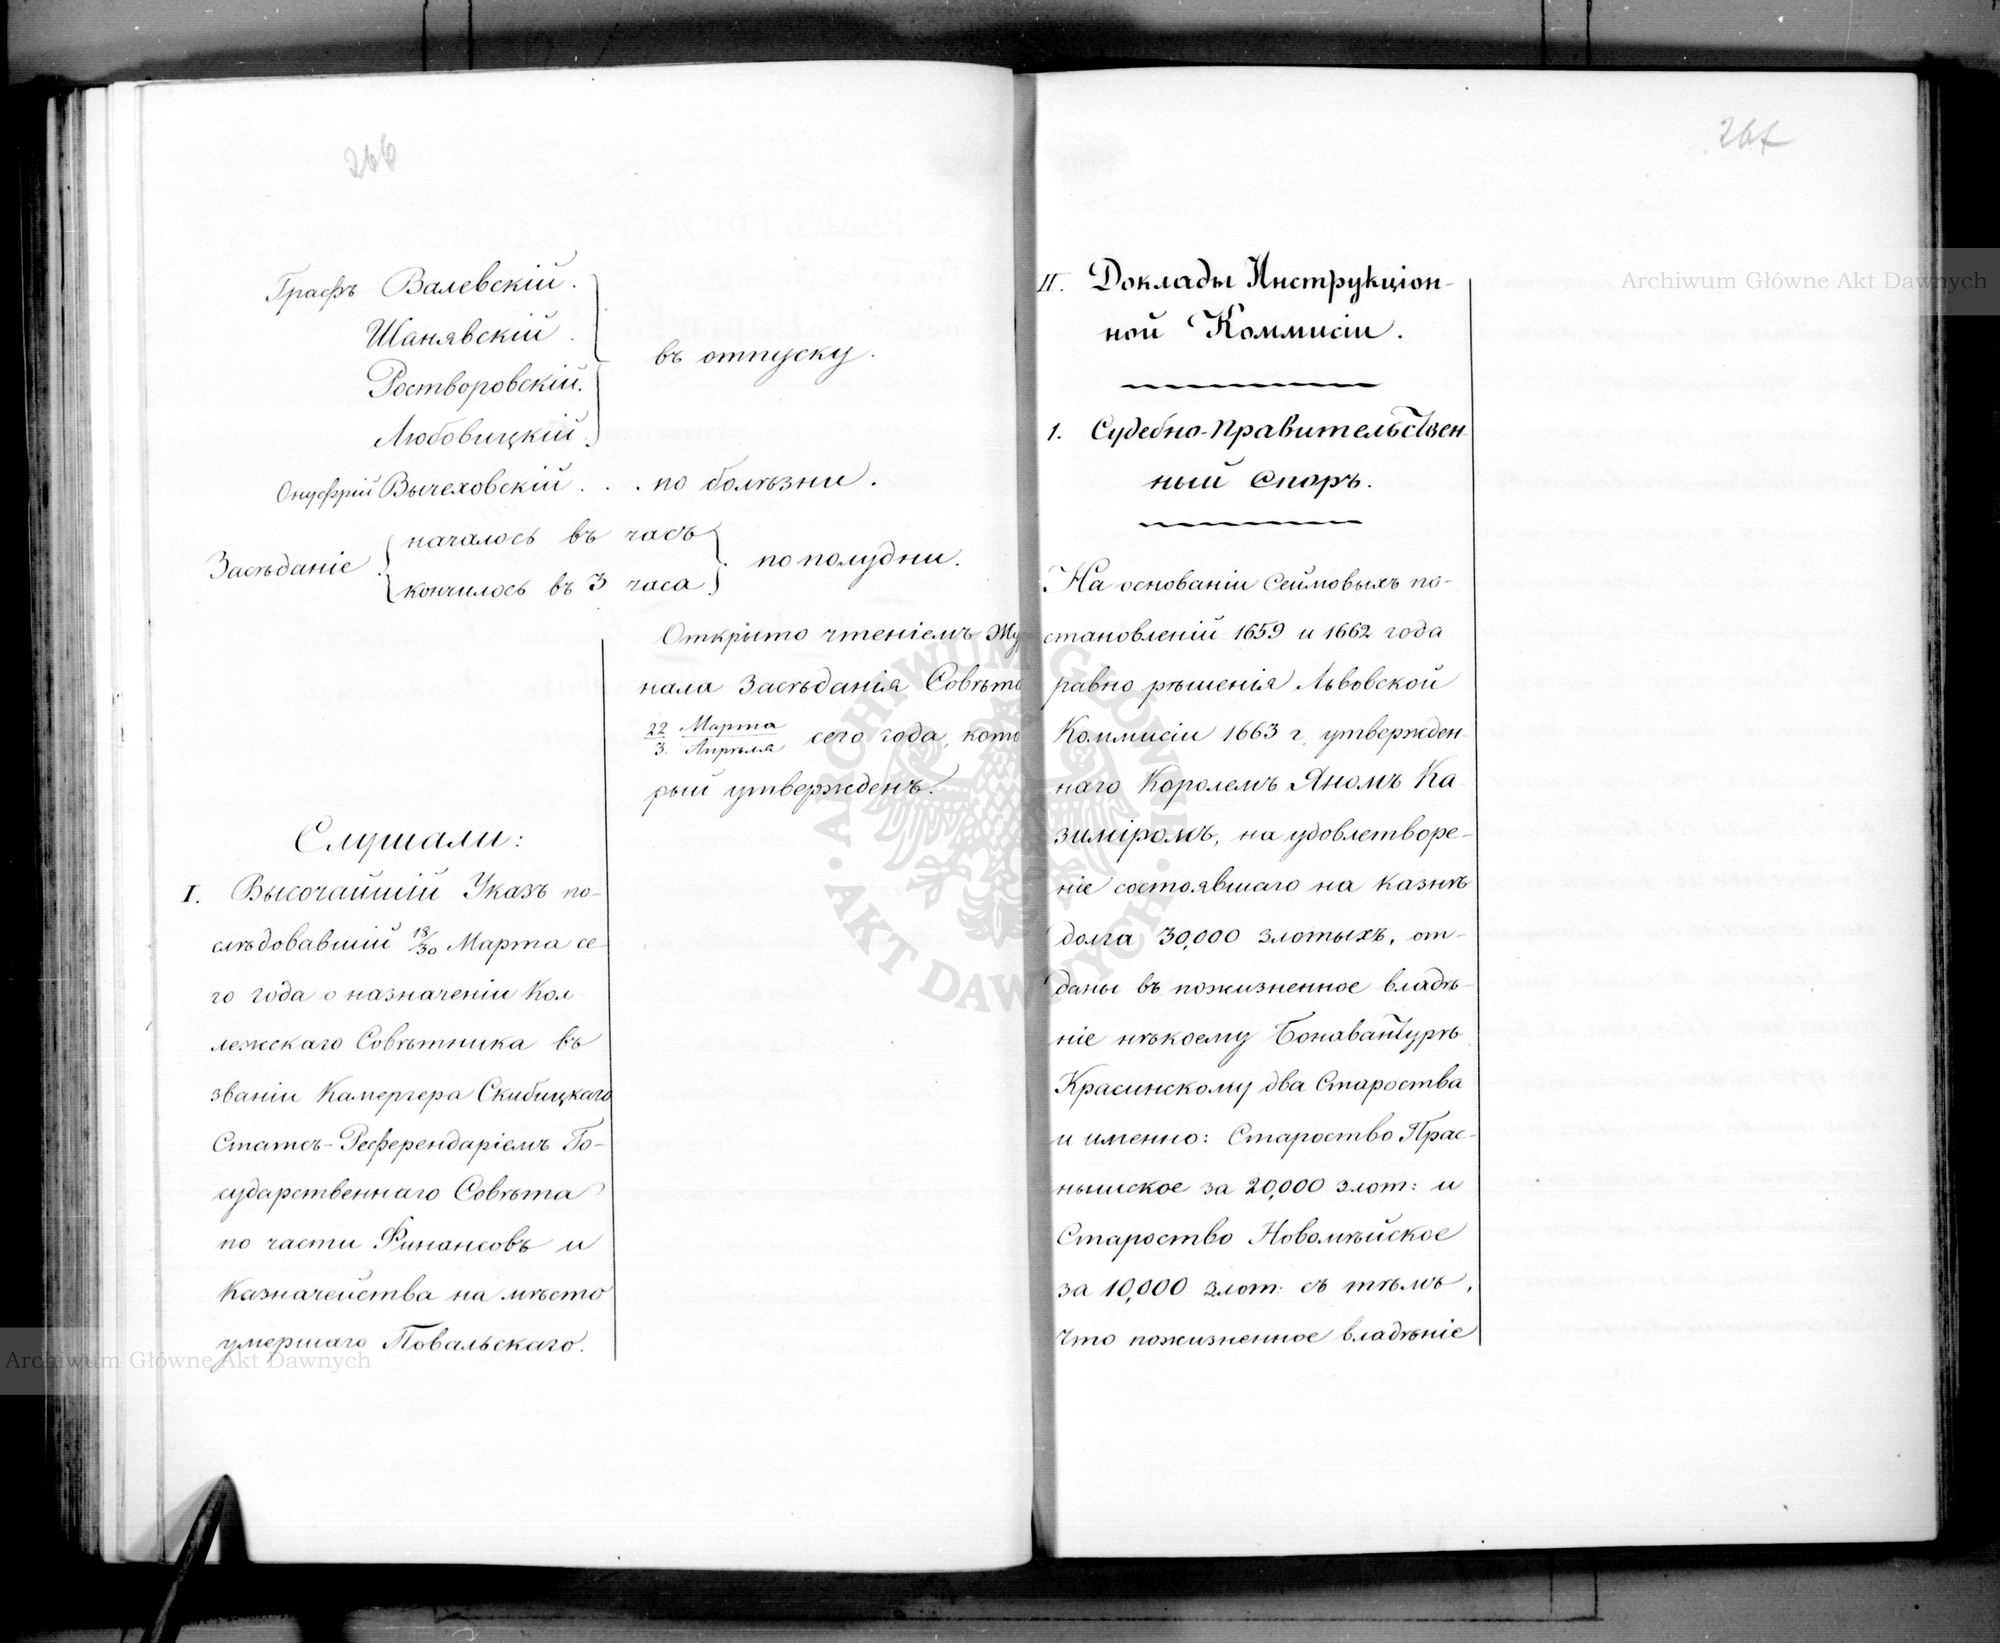 266
Графъ Валевскій.
Шанявскій.
Ростворовскій.
Любовицкій.
въ отпуску.
Онуфрій Вычеховскій . . . по болѣзни.
Засѣданіе
началось въ часъ
кончилось въ 3 часа
по полудни.
Открыто чтеніемъ Жур
нала Засѣданія Совѣта
22/3. Марта/Апрѣля сего года, кото
рый утвержденъ.
Слушали:
I. Высочайшій Указъ по-
слѣдовавшій 18/30 Марта се-
го года о назначеніи Кол-
лежскаго Совѣтника въ
званіи Камергера Скибицкаго
Статсъ-Референдаріемъ Го-
сударственнаго Совѣта
по части Финансовъ и
Казначейства на мѣсто
умершаго Повальскаго.
267
II. Доклады Инструкціон-
ной Коммисіи.
1. Судебно-Правительствен
ный Споръ.
На основаніи Сеймовыхъ по-
становленій 1659 и 1662 года
равно рѣшенія Львовской
Коммисіи 1663 г. утвержден-
наго Королемъ Яномъ Ка-
зиміромъ, на удовлетворе-
ніе состоявшаго на казнѣ
долга 30,000 злотыхъ, от-
даны въ пожизненное владѣ-
ніе нѣкоему Бонавантурѣ
Красинскому два Староства
и именно: Староство Прас-
нышское за 20,000 злот: и
Староство Новомѣйское
за 10,000 злот: съ тѣмъ,
что пожизненное владѣніе
Archiwum Główne Akt Dawnych
Archiwum Główne Akt Dawnych
ARCHIWUM GŁÓWNE · AKT DAWNYCH ·